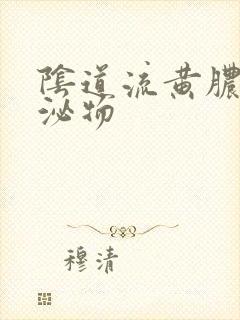 陰道流黄膿
泌物
穆清